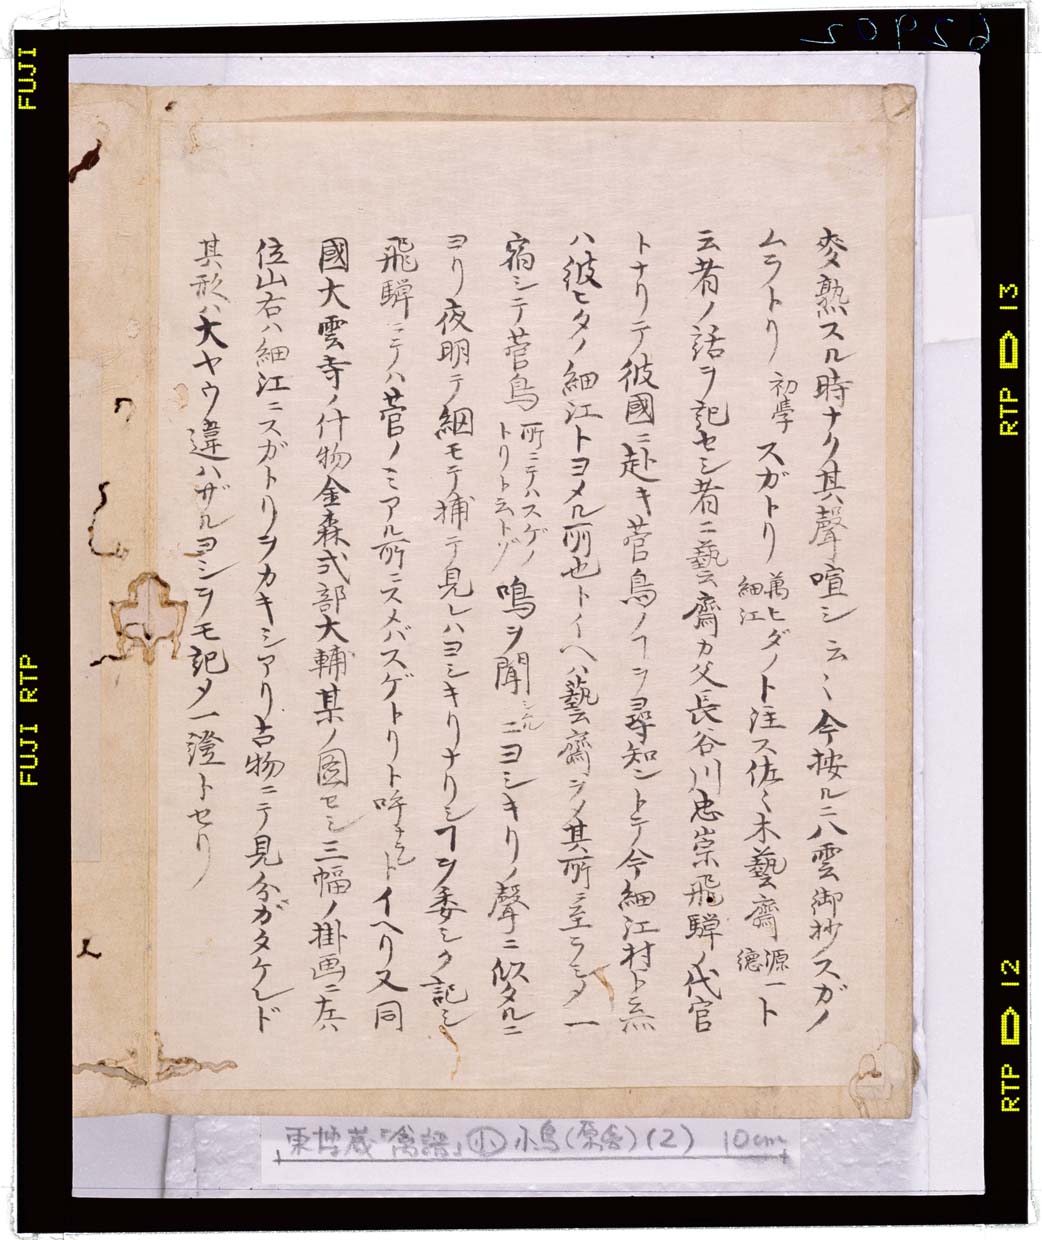 麥熟スル時ナク其聲喧シ云〻今按ルニ八雲御抄スガノ
ムラトリ 初學 スガトリ 萬 細江 ヒダノト注ス佐〻木藝齋 源一 德 ト
云者ノ話ヲ記セシ者ニ藝齋カ父長谷川忠崇飛騨ノ代官
トナリテ彼國ニ赴キ菅鳥ノヿヲ尋知ントテ今細江村ト云
ハ彼ヒタノ細江トヨメル所也トイヘハ藝齋ヲメ其所ニ至ラシメ一
宿シテ菅鳥 所ニテハスゲノ トリト云トゾ 鳴ヲ聞シニヨシキリノ聲ニ似タルニ
ヨリ夜明テ網モテ捕テ見レハヨシキリナリシヿヲ委シク記シ
飛騨ニテハ菅ノミアル所ニスメバスゲトリト呼ナラントイヘリ又同
國大雲寺ノ什物金森式部大輔某ノ図セシ三幅ノ掛画ニ左ハ
位山右ハ細江ニスガトリヲカキシアリ古物ニテ見分ガタケレド
其形ハ大ヤウ違ハザルヨシヲモ記メ一證トセリ
東博蔵「禽譜」小 小鳥(原舎)(2) 10cm
62902
FUJI
FUJI RTP
RTP 13
RTP 12